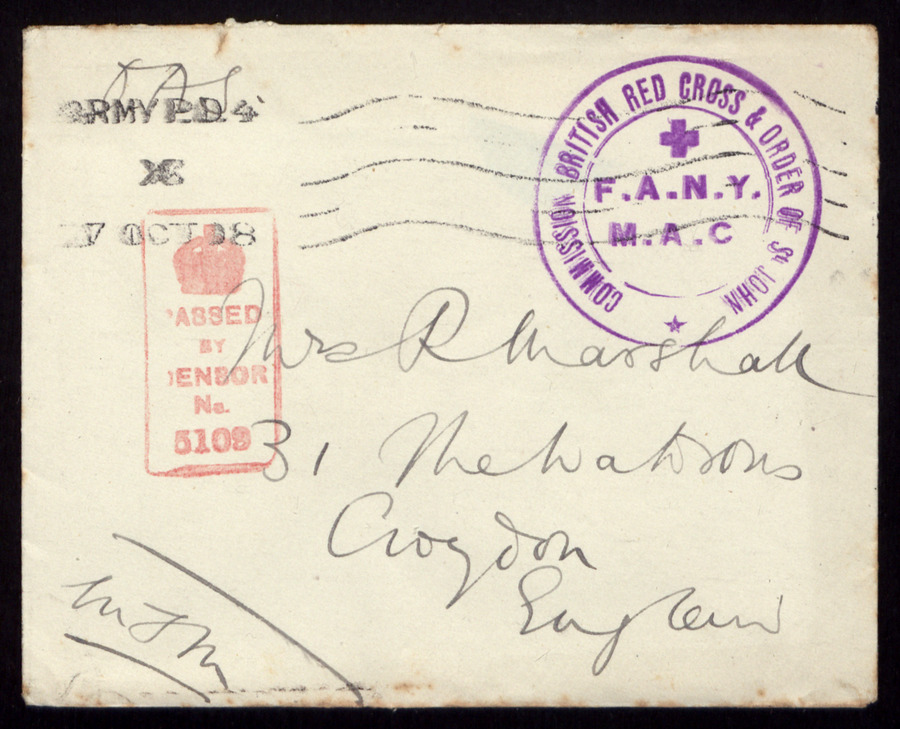 ARMY P.O. 4
X
7 OCT 18
COMMISSION BRITISH RED CROSS & ORDER OF St JOHN
F.A.N.Y.
M.A.C
PASSED
BY
CENSOR
No.
5109
Mrs R Marshall
31
Croydon
England